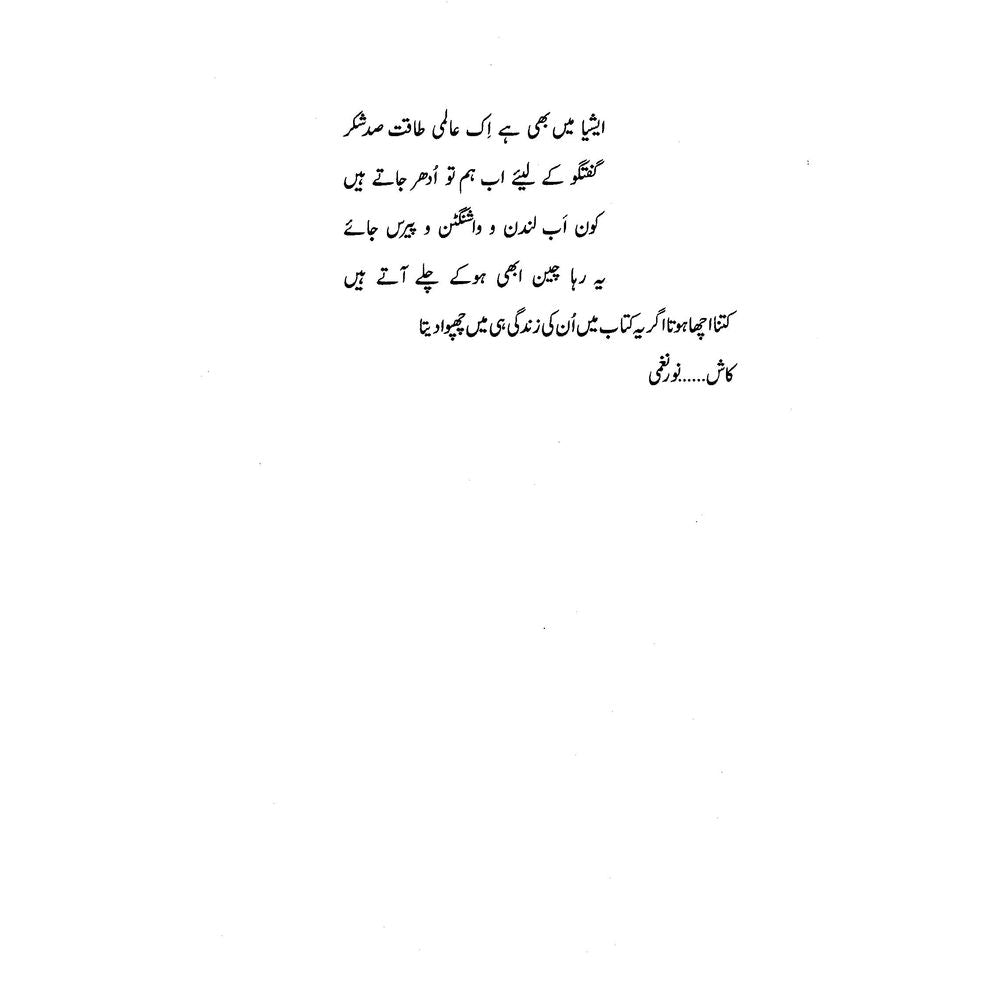 ایشیا میں بھی ہے اِک عالمی طاقت صد شکر
گفتگو کے لیئے اب ہم تو اُدھر جاتے ہیں
کون اَب لندن و واشنگٹن و پیرس جائے
یہ رہا چین ابھی ہوکے چلے آتے ہیں
کتنا اچھا ہوتا اگر یہ کتاب میں اُن کی زندگی ہی میں چھپوا دیتا
کاش......نور نغمی